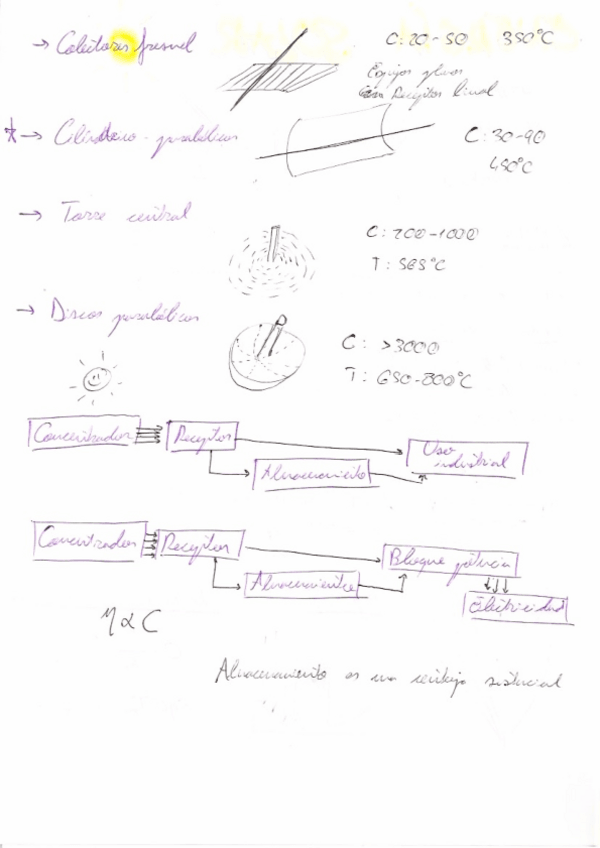 → Colectores fresnel
C: 20-50 350°C
Espejos planos
con Receptor lineal
* → Cilindro-parabólicos
C: 30-90
450°C
→ Torre central
C: 200-1000
T: 565°C
→ Discos parabólicos
C: >3000
T: 650-800°C
Concentrador
Receptor
Almacenamiento
Uso
industrial
Concentrador
Receptor
Almacenamiento
Bloque potencia
Electricidad
η α C
Almacenamiento es una ventaja sustancial